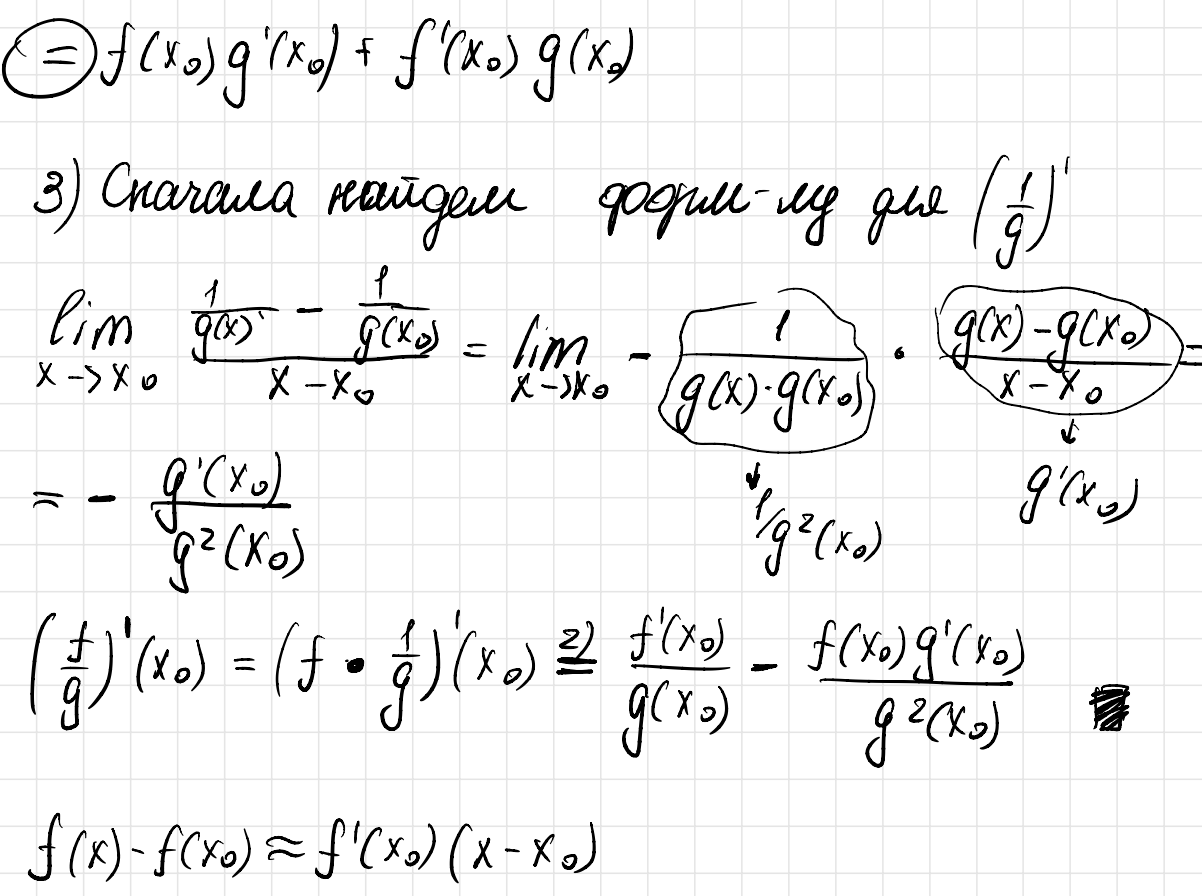 = f(x₀)g'(x₀) + f'(x₀)g(x₀)
3) Сначала найдем форм-лу для (1/g)'
lim x->x₀ (1/g(x) - 1/g(x₀))/(x - x₀) = lim x->x₀ - 1/(g(x)·g(x₀)) · (g(x) - g(x₀))/(x - x₀) =
↓ 1/g²(x₀) ↓ g'(x₀)
= - g'(x₀)/g²(x₀)
(f/g)'(x₀) = (f · 1/g)'(x₀) 2)= f'(x₀)/g(x₀) - f(x₀)g'(x₀)/g²(x₀) ■
f(x) - f(x₀) ≈ f'(x₀)(x - x₀)